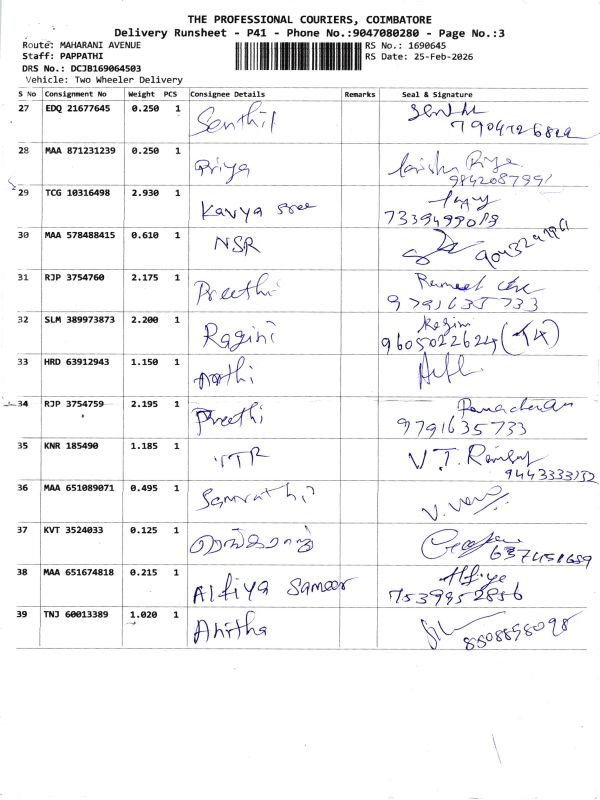 THE PROFESSIONAL COURIERS, COIMBATORE
Delivery Runsheet - P41 - Phone No.:9047080280 - Page No.:3
Route: MAHARANI AVENUE
RS No.: 1690645
Staff: PAPPATHI
RS Date: 25-Feb-2026
DRS No.: DCJB169064503
Vehicle: Two Wheeler Delivery
S No Consignment No Weight PCS Consignee Details Remarks Seal & Signature
27 EDQ 21677645 0.250 1 Senthil
28 MAA 871231239 0.250 1 Priya
9842087991
29 TCG 10316498 2.930 1 Kavya Sree
7339499019
30 MAA 578488415 0.610 1 NSR
31 RJP 3754760 2.175 1 Preethi
9791635733
32 SLM 389973873 2.200 1 Ragini Ragini
9605022624 (T4)
33 HRD 63912943 1.150 1 Aarthi
34 RJP 3754759 2.195 1 Preethi
9791635733
35 KNR 185490 1.185 1 VTR V.T.
36 MAA 651089071 0.495 1
37 KVT 3524033 0.125 1
38 MAA 651674818 0.215 1 Alfiya Sameer Alfiya
7539952856
39 TNJ 60013389 1.020 1 Anitha
8508858098